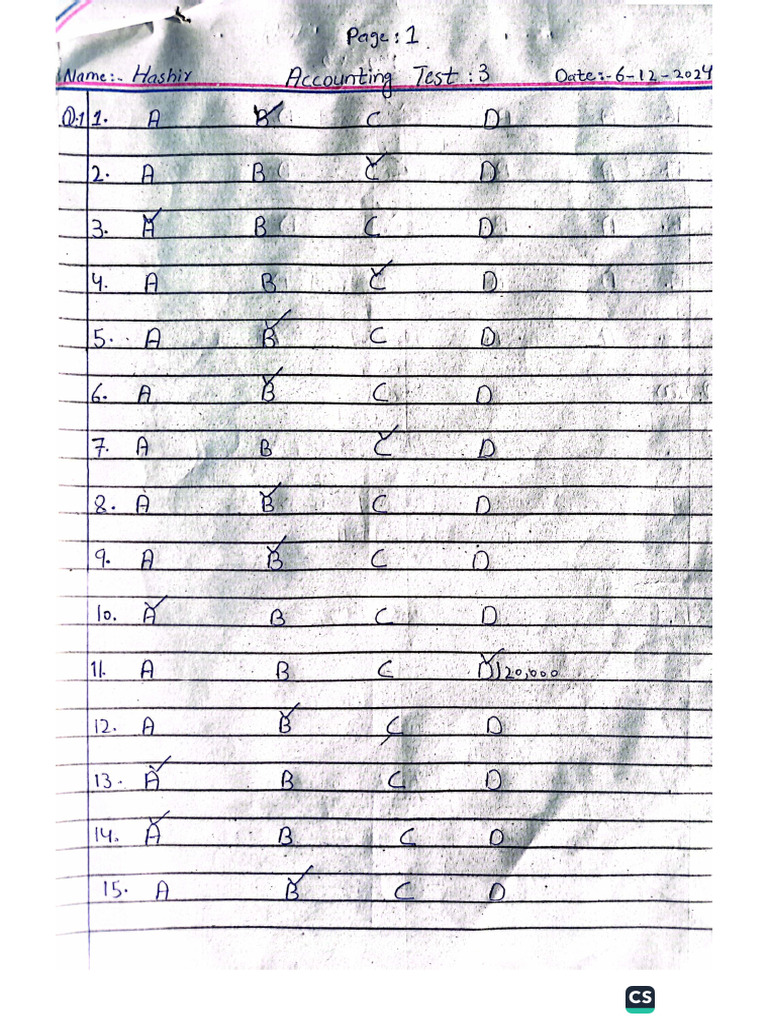 Page: 1
Name:- Hashir Accounting Test: 3 Date:- 6-12-2024
Q.1 1. A B ✓ C D
2. A B C ✓ D
3. A ✓ B C D
4. A B C ✓ D
5. A B ✓ C D
6. A B ✓ C D
7. A B C ✓ D
8. A B ✓ C D
9. A B ✓ C D
10. A ✓ B C D
11. A B C D ✓ 120,000
12. A B ✓ C D
13. A ✓ B C D
14. A ✓ B C D
15. A B ✓ C D
CS